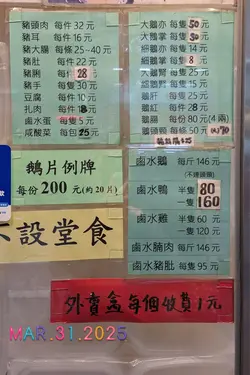 豬頭肉 每件32元
豬耳 每件16元
豬大腸 每條25-40元
豬肚 每件22元
豬脷 每件28元
豬手 每件30元
豆腐 每件10元
扎肉 每件18元
鹵水蛋 每隻5元
咸酸菜 每包25元
大鵝亦 每隻50元
大鵝掌 每隻30元
細鵝亦 每隻14元
細鵝掌 每隻8元
鵝頭 每隻15元
鵝肝
鵝紅 每件28元
鵝腸 每件80元(4兩)
鵝頭頸 每條50元
鵝片例牌
每份200元(約20片)
不設堂食
鹵水鵝 每斤146元
鹵水鴨 半隻80
一隻160
鹵水雞 半隻60元
一隻120元
鹵水腩肉 每斤146元
鹵水豬肚 每隻95元
外賣盒每個收費1元
MAR.31.2025